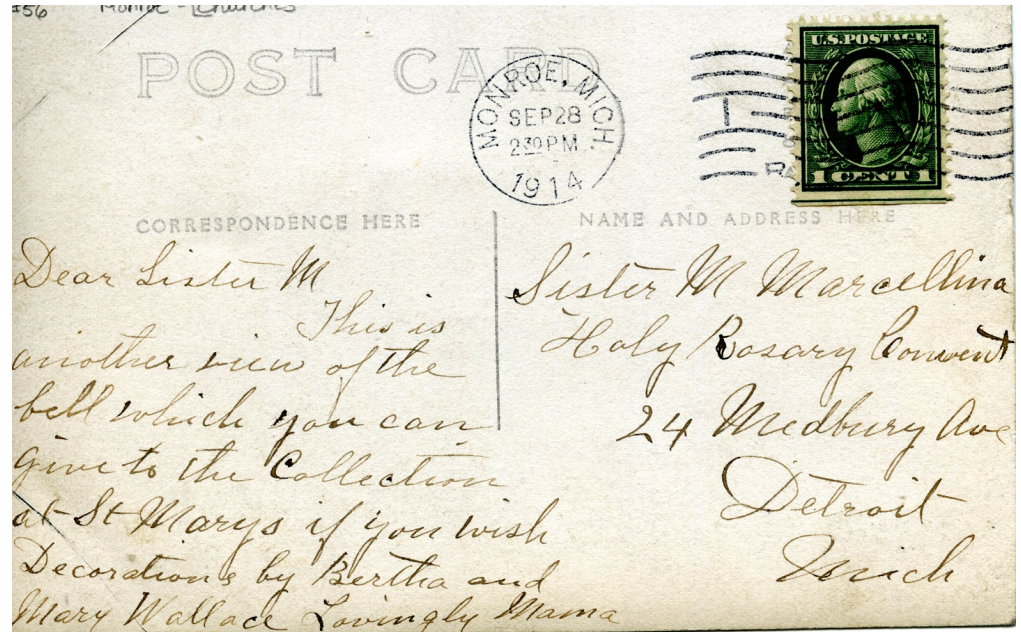 #56 Monroe - Churches
POST CARD
U.S. POSTAGE
MONROE, MICH.
SEP 28
2 30 PM
1914
1 CENT 1
CORRESPONDENCE HERE
NAME AND ADDRESS HERE
Dear Sister M
This is
another view of the
bell which you can
give to the Collection
at St Marys if you wish
Decorations by Bertha and
Mary Wallace Lovingly Mama
Sister M Marcellina
Holy Rosary Convent
24 Medbury Ave
Detroit
Mich